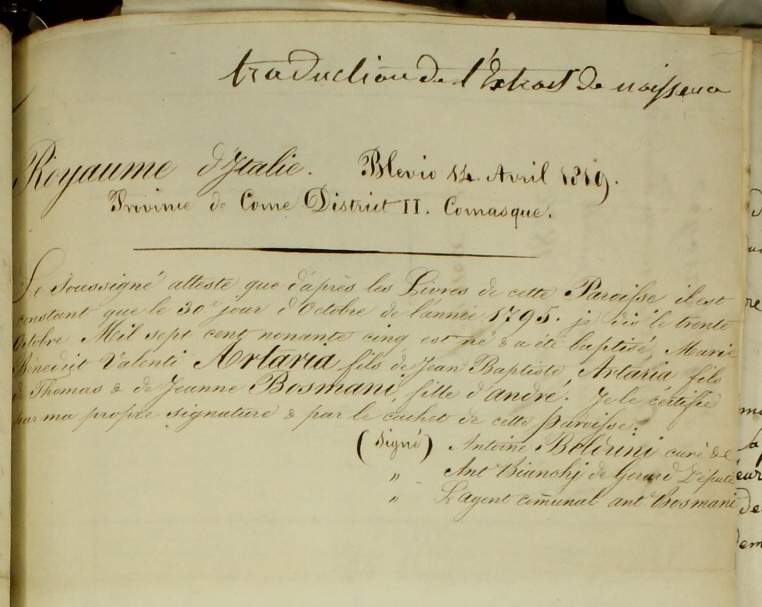 traduction de l'Extrait de naissance
Royaume d'Italie. Blevio 14 Avril 1819.
Province de Come District II. Comasque.
Le Soussigné atteste que d'après les Livres de cette Paroisse il est
constant que le 30e jour d'Octobre de l'année 1795. je dis le trente
Octobre Mil sept cent nonante cinq est né & a été baptisé, Marie
Bénédict Valenti Artaria fils de Jean Baptiste, Artaria fils
de Thomas & de Jeanne Bosmani, fille d'andré. Je le certifie
par ma propre signature & par le cachet de cette paroisse.
(Signé) Antoine Boldrini curé &c
" Ant Bianchj de Gerard Député
" L'agent comunal ant Bosmani